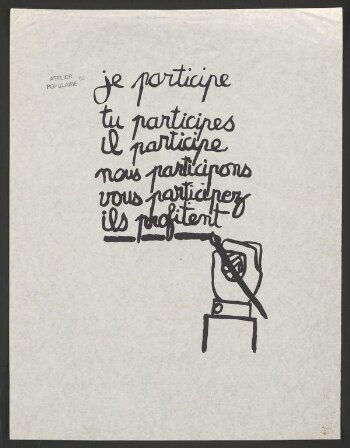 je participe
ATELIER
POPULAIRE
tu participes
il participe
nous participons
vous participez
ils profitent